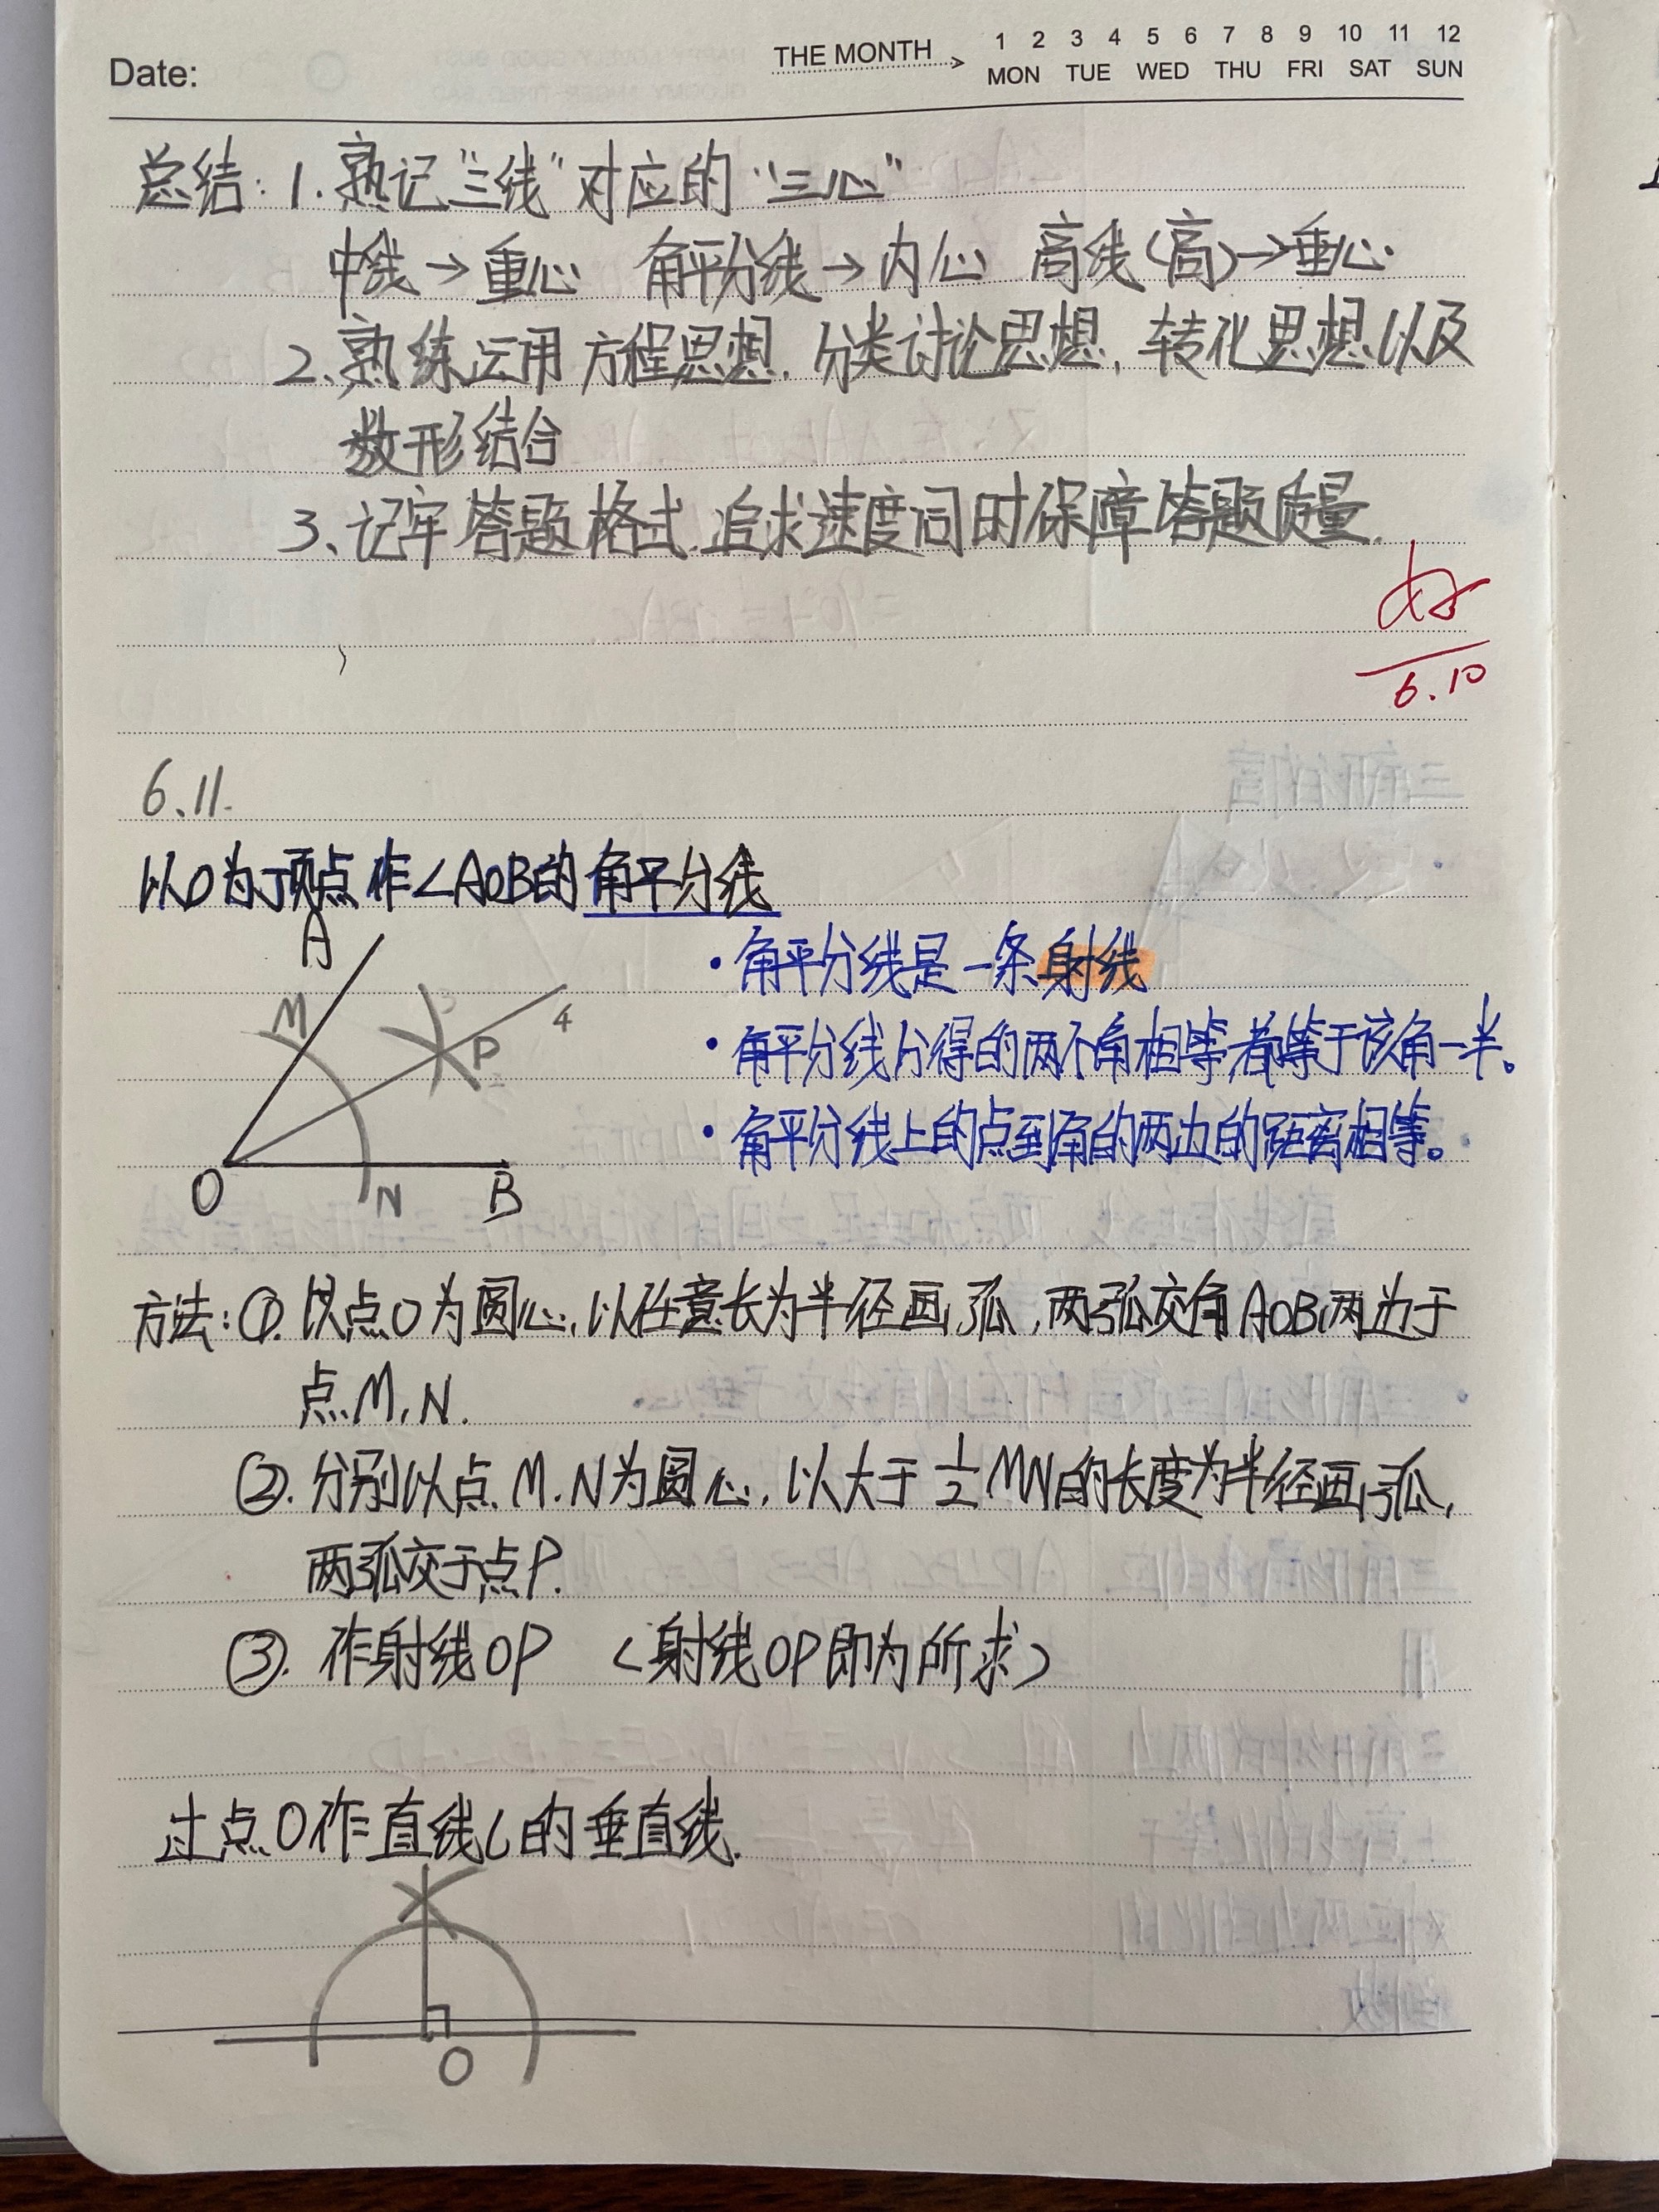 Date:
THE MONTH 1 2 3 4 5 6 7 8 9 10 11 12
MON TUE WED THU FRI SAT SUN
总结:1.熟记"三线"对应的"三心"
中线→重心 角平分线→内心 高线(高)→垂心.
2、熟练运用方程思想,分类讨论思想,转化思想以及
数形结合
3、记牢答题格式,追求速度同时保障答题质量.
好
6.10
6.11.
以O为顶点作∠AOB的角平分线
A
M
3
4
P
2
O
N
B
·角平分线是一条射线
·角平分线分得的两个角相等都等于该角一半。
·角平分线上的点到角的两边的距离相等。
方法:①.以点O为圆心,以任意长为半径画弧,两弧交角AOB两边于
点M,N.
②.分别以点M.N为圆心,以大于½MN的长度为半径画弧,
两弧交于点P.
③.作射线OP <射线OP即为所求>
过点O作直线L的垂直线.
O